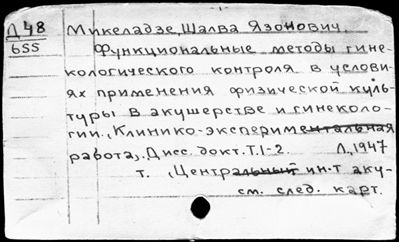 Д48 Микеладзе, Шалва Язонович.
655 Функциональные методы гине-
кологического контроля в услови-
ях применения физической куль-
туры в акушерстве и гинеколо-
гии. (Клинико-экспериментальная
работа). Дисс. докт. Т.1-2. Л, 1947
т. (Центральный ин-т аку-
см. след. карт.